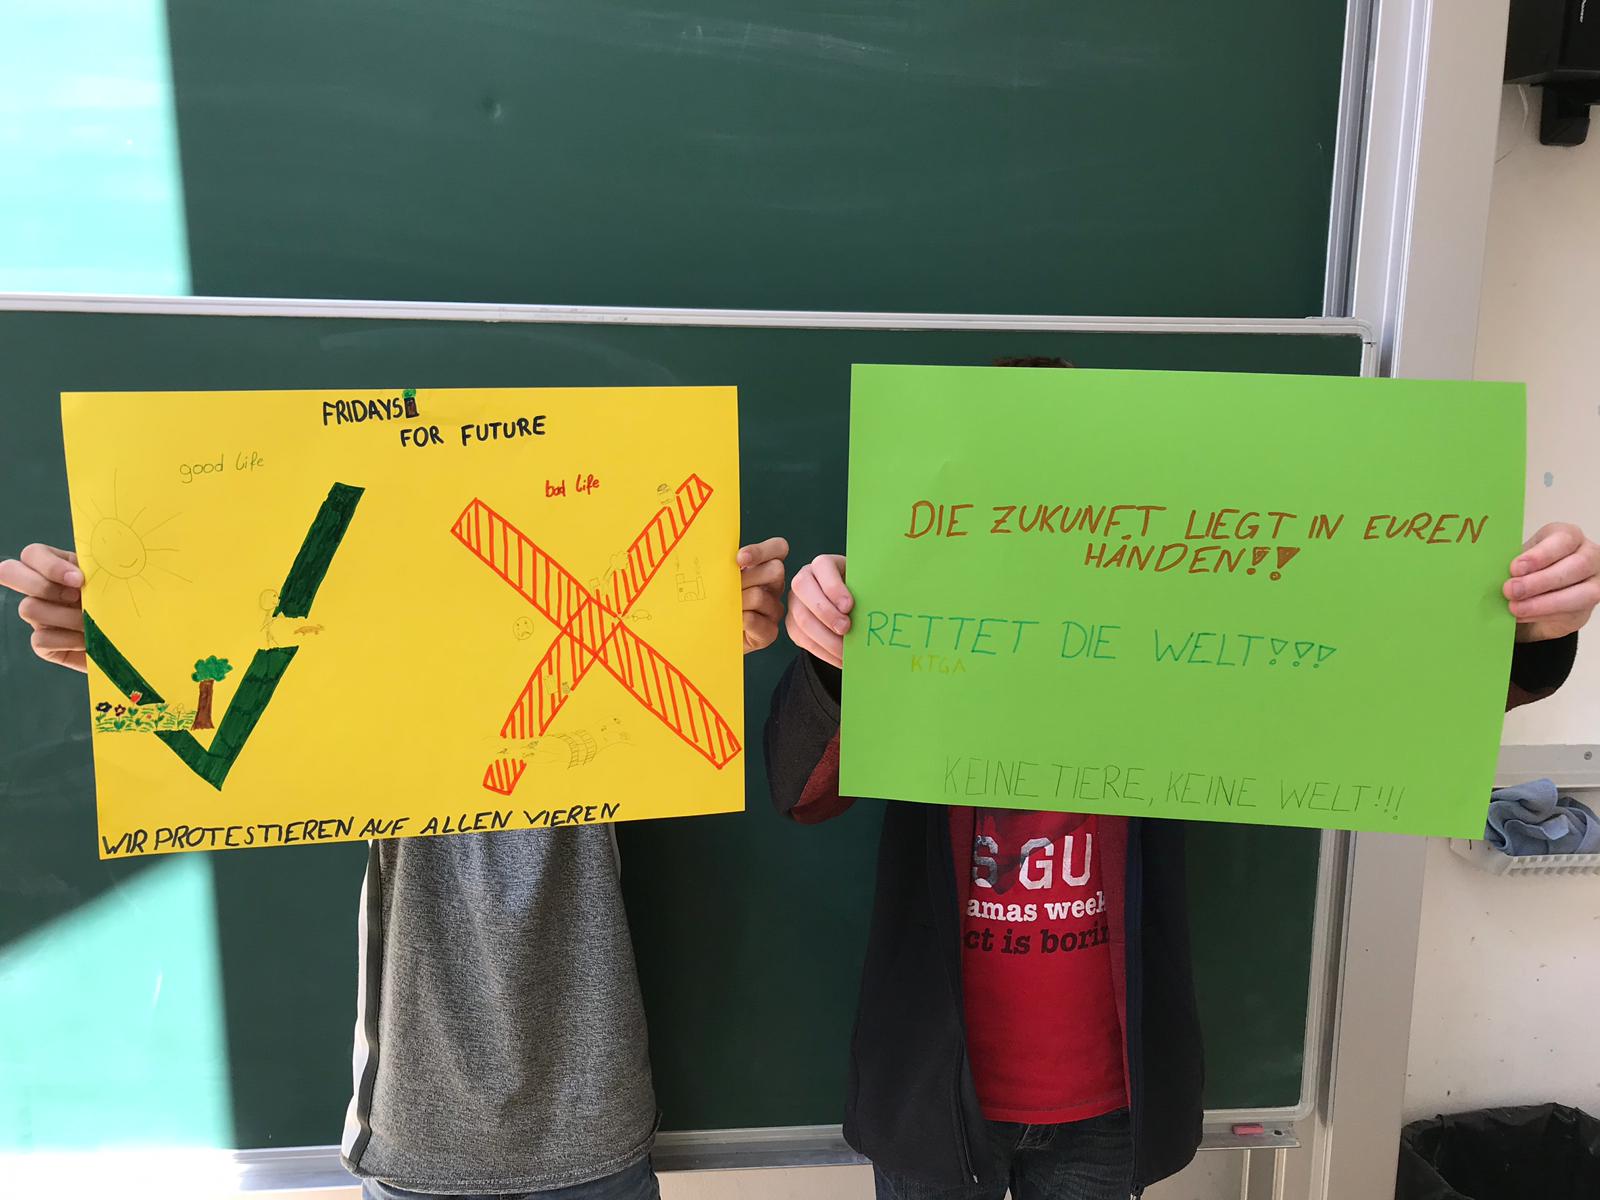 FRIDAYS
FOR FUTURE
good life
bad life
WIR PROTESTIEREN AUF ALLEN VIEREN
DIE ZUKUNFT LIEGT IN EUREN
HÄNDEN!!
RETTET DIE WELT!!!
KTGA
KEINE TIERE, KEINE WELT!!!
S GU
amas week
ct is borin